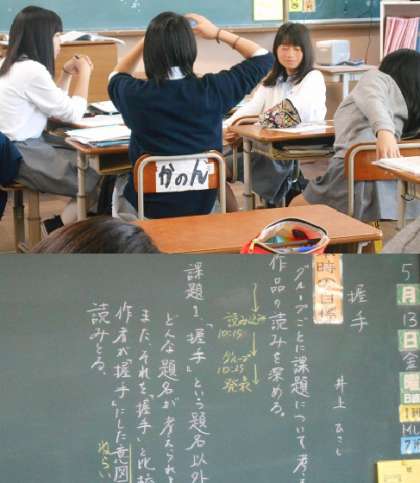 かのん
5月13日金曜
握手
井上ひさし
時の目標
グループごとに課題について考
作品の読みを深める。
読み込み
10:15
グループ
10:25
発表
課題1、「握手」という題名以外
どんな題名が考えられ
また、それを「握手」と比
作者が「握手」にした意図
ねらい
読みとる。